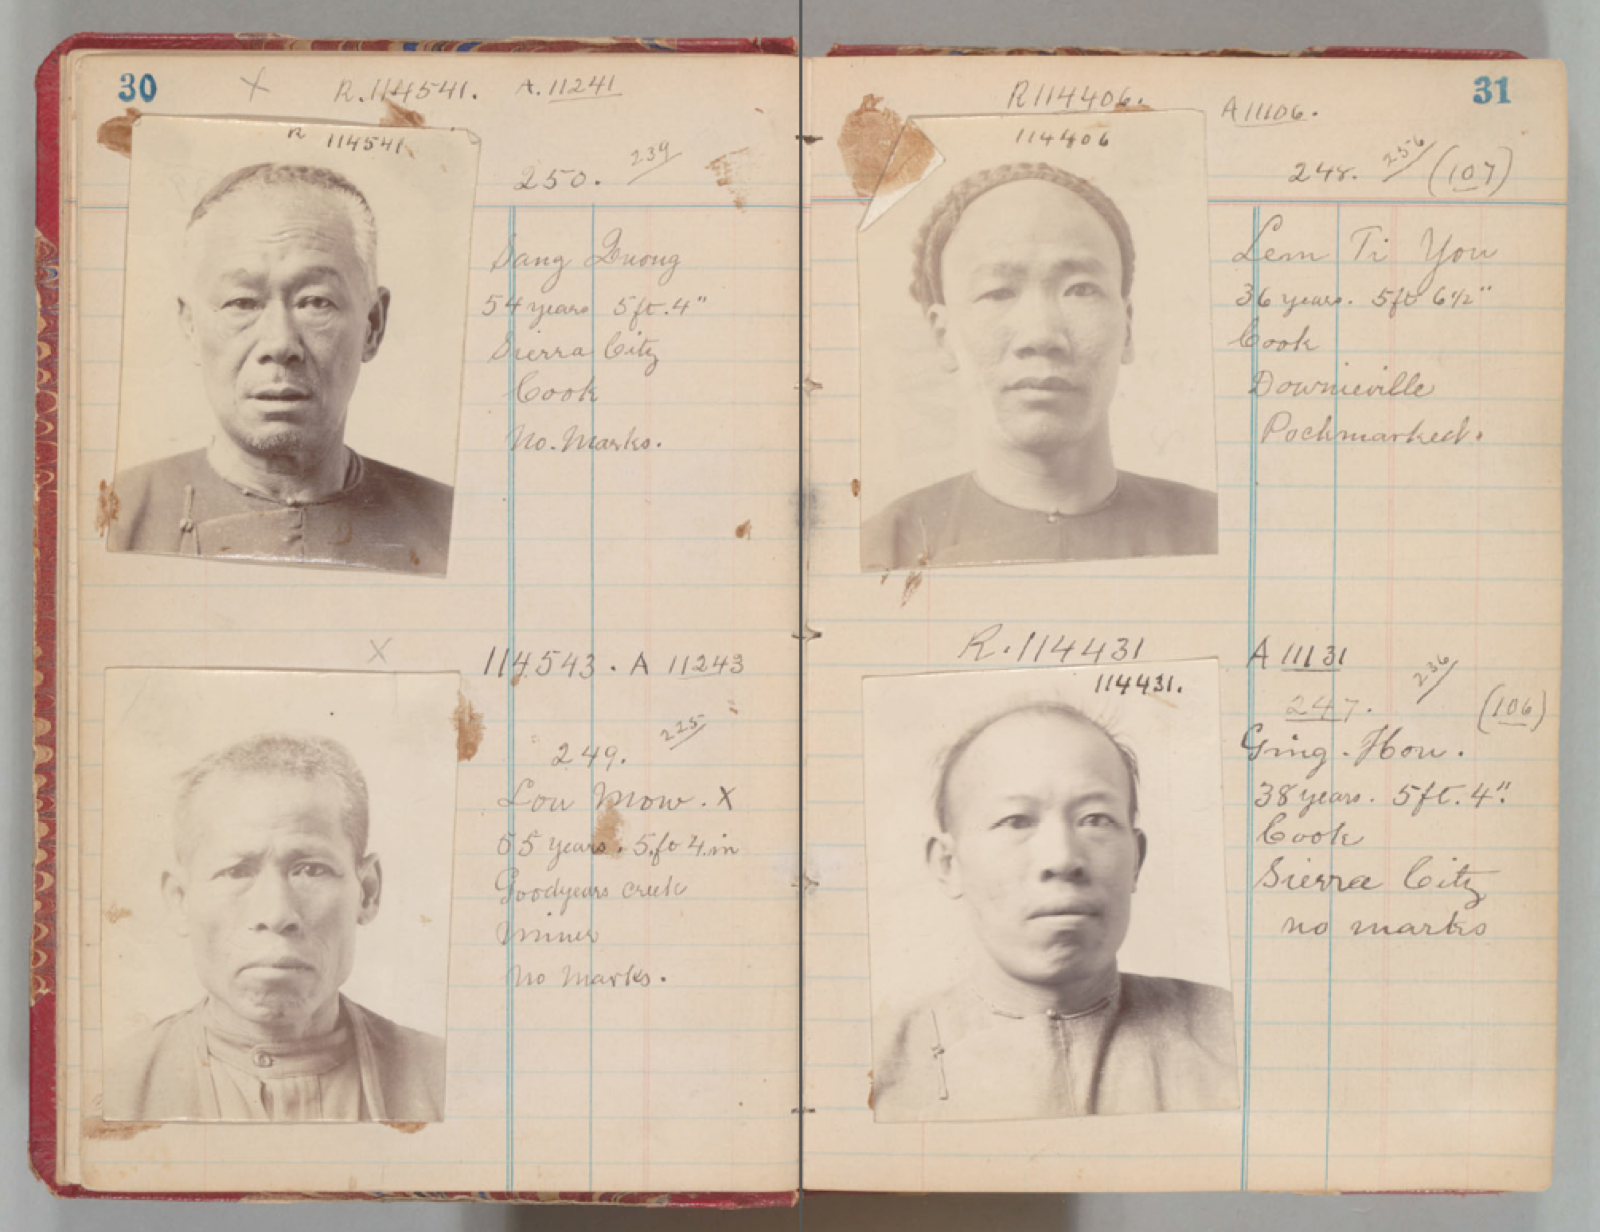 30
X R. 114541. A. 11241
R 114541
250. 239/
Sang Duong
54 years 5ft. 4"
Sierra City
Cook
No. Marks.
X
114543. A 11243
249. 225/
Lou Mow. X
55 years. 5.ft 4.in
Goodyears creek
Miner
No Marks.
31
R 114406. A 11106.
114406
248. 256/ (107)
Lem Ti You
36 years. 5ft 6 1/2"
Cook
Downieville
Pockmarked.
R. 114431 A 11131
114431.
247. 236/ (106)
Ging. Hou.
38 years. 5ft. 4".
Cook
Sierra City
no marks